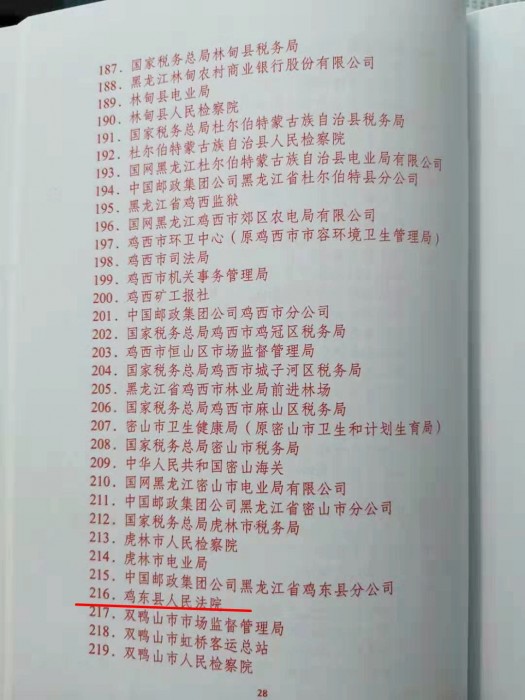 187. 国家税务总局林甸县税务局
188. 黑龙江林甸农村商业银行股份有限公司
189. 林甸县电业局
190. 林甸县人民检察院
191. 国家税务总局杜尔伯特蒙古族自治县税务局
192. 杜尔伯特蒙古族自治县人民检察院
193. 国网黑龙江杜尔伯特蒙古族自治县电业局有限公司
194. 中国邮政集团公司黑龙江省杜尔伯特县分公司
195. 黑龙江省鸡西监狱
196. 国网黑龙江鸡西市郊区农电局有限公司
197. 鸡西市环卫中心（原鸡西市市容环境卫生管理局）
198. 鸡西市司法局
199. 鸡西市机关事务管理局
200. 鸡西矿工报社
201. 中国邮政集团公司鸡西市分公司
202. 国家税务总局鸡西市鸡冠区税务局
203. 鸡西市恒山区市场监督管理局
204. 国家税务总局鸡西市城子河区税务局
205. 黑龙江省鸡西市林业局前进林场
206. 国家税务总局鸡西市麻山区税务局
207. 密山市卫生健康局（原密山市卫生和计划生育局）
208. 国家税务总局密山市税务局
209. 中华人民共和国密山海关
210. 国网黑龙江密山市电业局有限公司
211. 中国邮政集团公司黑龙江省密山市分公司
212. 国家税务总局虎林市税务局
213. 虎林市人民检察院
214. 虎林市电业局
215. 中国邮政集团公司黑龙江省鸡东县分公司
216. 鸡东县人民法院
217. 双鸭山市市场监督管理局
218. 双鸭山市虹桥客运总站
219. 双鸭山市人民检察院
28